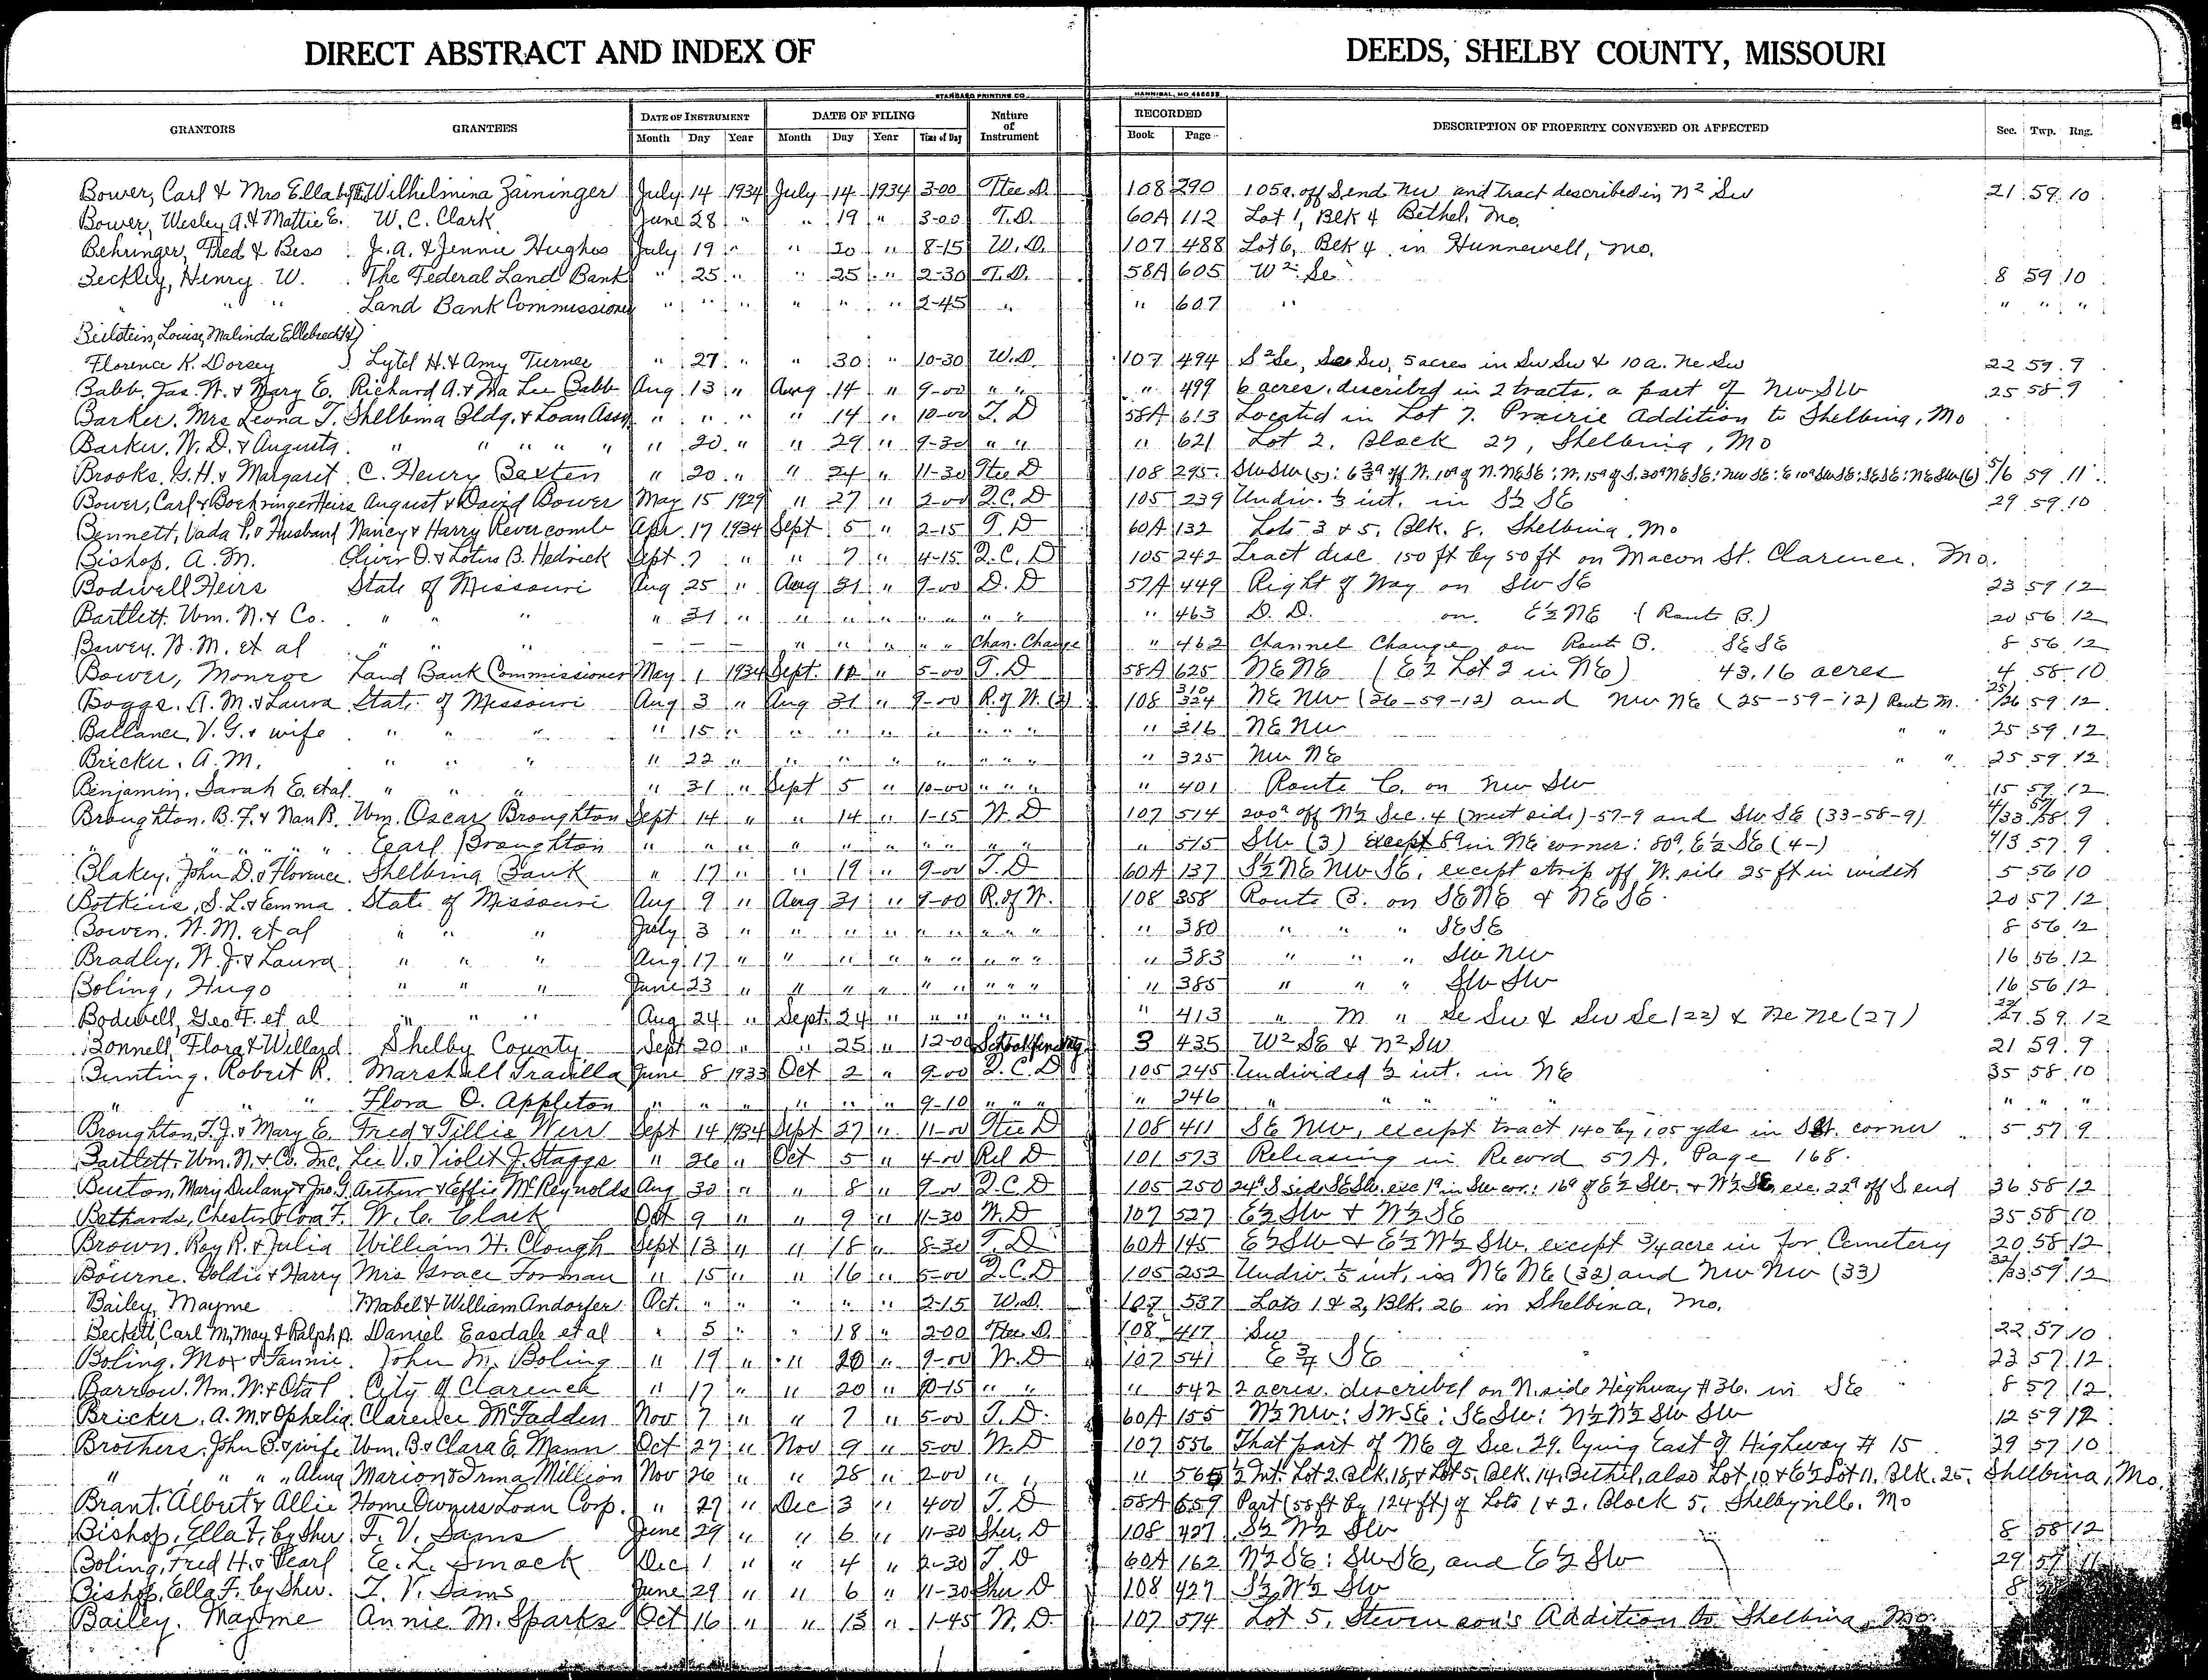 DIRECT ABSTRACT AND INDEX OF DEEDS, SHELBY COUNTY, MISSOURI
STANDARD PRINTING CO. HANNIBAL, MO
GRANTORS GRANTEES DATE OF INSTRUMENT DATE OF FILING Nature of Instrument RECORDED DESCRIPTION OF PROPERTY CONVEYED OR AFFECTED Sec. Twp. Rng.
Month Day Year Month Day Year Time of Day Book Page
Bower, Carl & Mrs Ella Wilhelmina Zaininger July 14 1934 July 14 1934 3-00 Ttee D. 108 290 105a. off S end Nw and tract described in N2 Sw 21 59 10
Bower, Wesley A. & Mattie E. W. C. Clark June 28 " " 19 " 3-00 T.D. 60A 112 Lot 1, Blk 4 Bethel, Mo.
Behringer, Fred & Bess J. A. & Jennie Hughes July 19 " " 20 " 8-15 W.D. 107 488 Lot 6, Blk 4 in Hunnewell, Mo.
Beckley, Henry W. The Federal Land Bank " 25 " " 25 " 2-30 T.D. 58A 605 W2 Se 8 59 10
" " Land Bank Commissioner " " " " " " 2-45 " " 607 " " " "
Beilstein, Louise, Malinda Ellebrecht &
Florence K. Dorsey Lytel H. & Amy Turner " 27 " " 30 " 10-30 W.D. 107 494 S2 Se, Sw, 5 acres in Sw Sw & 10 a. Ne Sw 22 59 9
Babb, Jas. N. & Mary E. Richard A. & Ina Lee Babb Aug 13 " Aug 14 " 9-00 " " " 499 6 acres, described in 2 tracts, a part of NW SW 25 58 9
Barker, Mrs Leona T. Shelbina Bldg. & Loan Assn " " " " 14 " 10-00 T.D 58A 613 Located in Lot 7. Prairie Addition to Shelbina, Mo
Barker, W. D. & Augusta " " " " " " 20 " " 29 " 9-30 " " " 621 Lot 2, Block 27, Shelbina, Mo
Brooks, G.H. & Margaret C. Henry Baxten " 20 " " 24 " 11-30 Ttee D 108 295 SWSW(5): off N. 10a of N. NESE: N. 15a of S. 30a NESE: NW SE: E 10a SWSE: SESE: NESW(6) 5/6 59 11
Bower, Carl & Boehringer Heirs August & David Bower May 15 1929 " 27 " 2-00 Q.C.D 105 239 Undiv. 1/3 int. in S½ SE 29 59 10
Bennett, Vada P. & Husband Nancy & Harry Revercomb Apr. 17 1934 Sept 5 " 2-15 T.D 60A 132 Lots 3 & 5, Blk. 8. Shelbina, Mo
Bishop, A. M. Oliver D. & Lotus B. Hedrick Sept. 7 " " 7 " 4-15 Q.C.D 105 242 Tract desc 150 ft by 50 ft on Macon St. Clarence, Mo.
Bodwell Heirs State of Missouri Aug 25 " Aug 31 " 9-00 D. D 57A 449 Right of Way on SW SE 23 59 12
Bartlett, Wm. N. & Co. " " " " 31 " " " " " " " " 463 D. D. on E½ NE (Route B.) 20 56 12
Bowey, N. M. et al " " " — — — " " " " " Chan. Change " 462 Channel Change on Route B. SE SE 8 56 12
Bower, Monroe Land Bank Commissioner May 1 1934 Sept. 10 " 5-00 T.D 58A 625 NE NE (E½ Lot 2 in NE) 43.16 acres 4 58 10
Boggs, A. M. & Laura State of Missouri Aug 3 " Aug 31 " 9-00 R. of W. (2) 108 310 324 NE NW (26-59-12) and NW NE (25-59-12) Rout M. 25/26 59 12
Ballance, V. G. & wife " " " " 15 " " " " " " " " " 316 NE NW " " 25 59 12
Bricker, A. M. " " " " 22 " " " " " " " " " 325 NW NE " " 25 59 12
Benjamin, Sarah E. et al. " " " " 31 " Sept 5 " 10-00 " " " " 401 Route C. on NW SW 15 57 12
Broughton, B. F. & Nan B. Wm. Oscar Broughton Sept 14 " " 14 " 1-15 W. D 107 514 200a off N½ Sec. 4 (west side)-57-9 and SW SE (33-58-9) 4/33 57/58 9
" " " " " Earl Broughton " " " " " " " " " " " 515 SW (3) except 8a in NE corner: 80a, E½ SE (4-) 4/3 57 9
Blakey, John D. & Florence Shelbina Bank " 17 " " 19 " 9-00 T.D 60A 137 S½ NE NW SE, except strip off W. side 25 ft in width 5 56 10
Botkins, S. L. & Emma State of Missouri Aug 9 " Aug 31 " 9-00 R. of W. 108 358 Route B. on SE NE & NE SE. 20 57 12
Bowen, N. M. et al " " " July 3 " " " " " " " " " " 380 " " " SE SE 8 56 12
Bradley, W. J. & Laura " " " Aug 17 " " " " " " " " " " 383 " " " SW NW 16 56 12
Boling, Hugo " " " June 23 " " " " " " " " " " 385 " " " SW SW 16 56 12
Bodwell, Geo F. et al " " " Aug 24 " Sept. 24 " " " " " " " 413 " M " Se Sw & Sw Se (22) & Ne Ne (27) 22/27 59 12
Bonnell, Flora & Willard Shelby County Sept 20 " " 25 " 12-00 School fund Mtg. 3 435 W2 SE & N2 SW 21 59 9
Bunting, Robert R. Marshall Tradilla June 8 1933 Oct 2 " 9-00 Q.C.D 105 245 Undivided ½ int. in NE 35 58 10
" " " Flora O. Appleton " " " " " " 9-10 " " " " 246 " " " " " " "
Broughton, T. J. & Mary E. Fred & Tillie Werr Sept 14 1934 Sept 27 " 11-00 Ttee D 108 411 SE NW, except tract 140 by 105 yds in corner 5 57 9
Bartlett, Wm. N. & Co. Inc, Lee V. & Violet J. Staggs " 26 " Oct 5 " 4-00 Rel D 101 573 Releasing in Record 57A, Page 168.
Burton, Mary Dulany & Jno. G Arthur & Effie McReynolds Aug 30 " " 8 " 9-00 Q.C.D 105 250 24a S side SE SW. exc 1a in SW cor.: 16a of E½ SW. & W½ SE, exc. 22a off S end 36 58 12
Bethards, Chester & Cora F. W. C. Clark Oct 9 " " 9 " 11-30 W.D 107 527 E½ SW & W½ SE 35 58 10
Brown, Roy R. & Julia William H. Clough Sept 13 " " 18 " 8-30 T.D 60A 145 E½ SW & E½ W½ SW. except ¾ acre in for Cemetery 20 58 12
Bourne, Goldie & Harry Mrs Grace Forman " 15 " " 16 " 5-00 Q.C.D 105 252 Undiv. 1/5 int, in NE NE (32) and NW NW (33) 32/33 59 12
Bailey, Mayme Mabel & William Andorfer Oct. " " " " " 2-15 W.D. 107 537 Lots 1 & 2, Blk. 26 in Shelbina, Mo.
Beckett, Carl M, May & Ralph P. Daniel Easdale et al " 5 " " 18 " 2-00 Ttee D. 108 417 Sw 22 57 10
Boling, Mox & Fannie John M. Boling " 19 " " 20 " 9-00 W.D 107 541 E ¾ SE 23 57 12
Barrow, Wm. W. & Otal City of Clarence " 17 " " 20 " 10-15 " " " 542 2 acres, described on N. side Highway #36. in SE 8 57 12
Bricker, A. M. & Ophelia Clarence McFadden Nov 7 " " 7 " 5-00 T.D. 60A 155 N½ NW: SWSE: SE SW: N½ N½ SW SW 12 59 12
Brothers, John C. & wife Wm. B & Clara E. Mann Oct 27 " Nov 9 " 5-00 W.D 107 556 That part of NE of Sec. 29. lying East of Highway # 15 29 57 10
" " " " Alma Marion & Irma Million Nov 26 " " 28 " 2-00 " " " 565 ½ Int. Lot 2. Blk. 18, & Lot 5, Blk. 14. Bethel, also Lot 10 & E½ Lot 11. Blk. 25. Shelbina, Mo.
Brant, Albert & Allie Home Owners Loan Corp. " 27 " Dec 3 " 4-00 T.D 58A 659 Part (58 ft by 124 ft) of Lots 1 & 2. Block 5, Shelbyville. Mo
Bishop, Ella F. by Sher F. V. Sams June 29 " " 6 " 11-30 Sher. D 108 427 S½ W½ SW 8 58 12
Boling, Fred H. & Pearl E. L. Smock Dec 1 " " 4 " 2-30 T.D 60A 162 N½ SE: SW SE, and E½ SW 29 57 11
Bishop, Ella F. by Sher. F. V. Sams June 29 " " 6 " 11-30 Sher D 108 427 S½ W½ SW 8
Bailey, Mayme Annie M. Sparks Oct 16 " " 13 " 1-45 W.D 107 574 Lot 5. Stevenson's Addition to Shelbina, Mo.